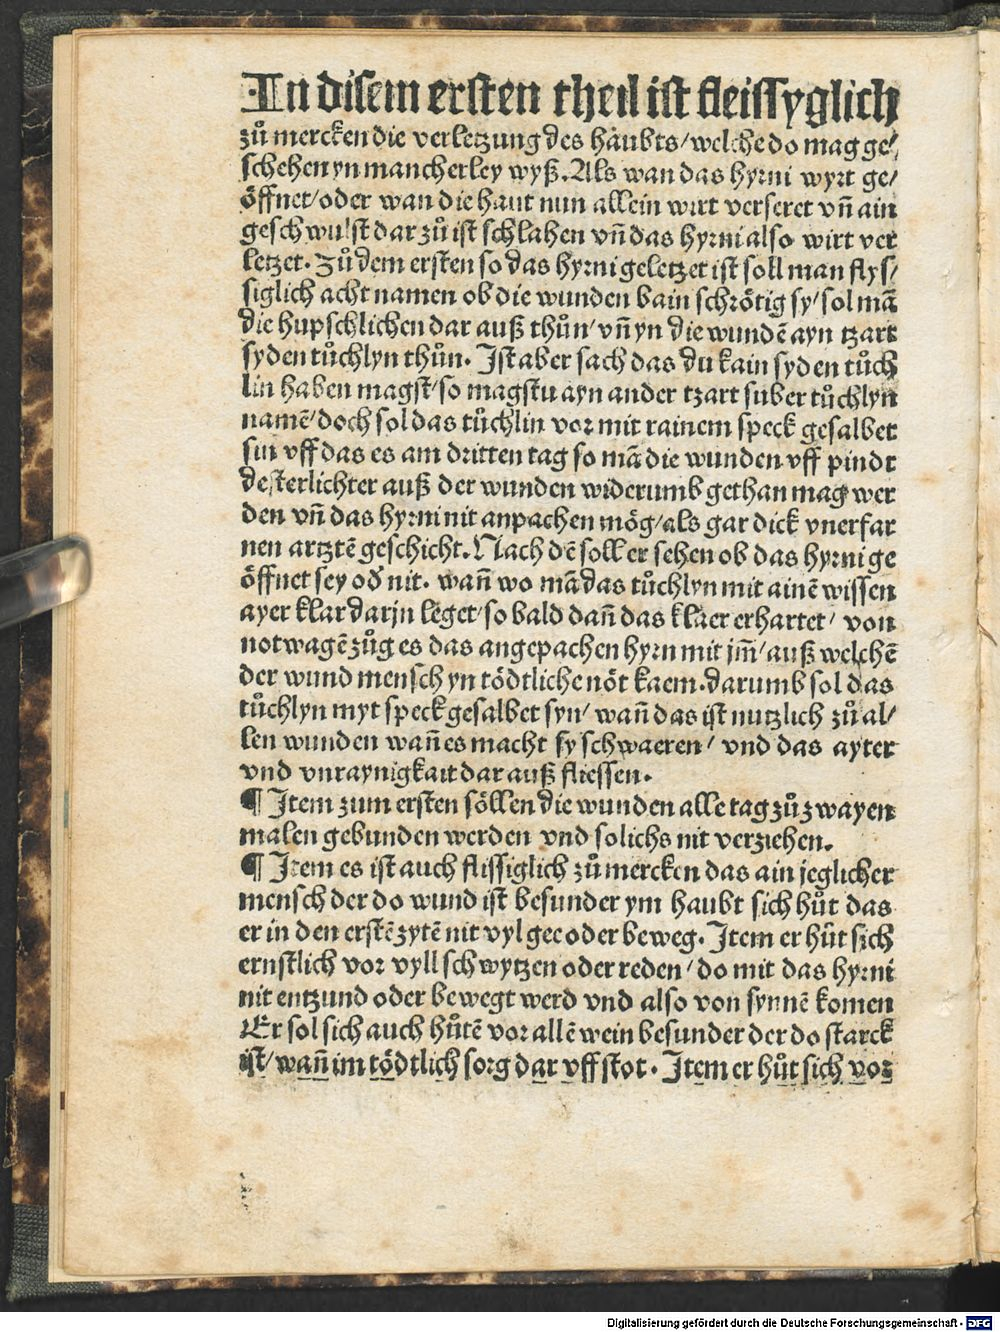 In disem ersten theil ist fleissyglich
zů mercken die verletzung des håubts/welche do mag ge/
schehen yn mancherley wyß. Als wan das hyrni wyrt ge/
öffnet/oder wan die haut nun allein wirt verseret vn̄ ain
geschwulst dar zů ist schlahen vn̄ das hyrni also wirt ver
letzet. Zů dem ersten so das hyrni geletzet ist soll man flys/
siglich acht namen ob die wunden bain schrötig sy/sol mā
die hupschlichen dar auß thůn/vn̄ yn die wundē ayn tzart
syden tůchlyn thůn. Ist aber sach das du kain syden tůch
lin haben magst/so magstu ayn ander tzart suber tůchlyn
namē/doch sol das tůchlin vor mit rainem speck gesalbet
sin vff das es am dritten tag so mā die wunden vff pindt
desterlichter auß der wunden widerumb gethan mag wer
den vn̄ das hyrni nit anpachen mög/als gar dick vnerfar
nen artztē geschicht. Nach dē soll er sehen ob das hyrni ge
öffnet sey od̕ nit. wan̄ wo mā das tůchlyn mit ainē wissen
ayer klar darjn leget/so bald dan̄ das klaer erhartet/ von
not wagē zůg es das angepachen hyrn mit jm̄/auß welchē
der wund mensch yn tödtliche nöt kaem. darumb sol das
tůchlyn myt speck gesalbet syn/ wan̄ das ist nutzlich zů al/
len wunden wan̄ es macht sy schwaeren/ vnd das ayter
vnd vnraynigkait dar auß fliessen.
¶ Item zum ersten söllen die wunden alle tag zů zwayen
malen gebunden werden vnd solichs nit verziehen.
¶ Item es ist auch flissiglich zů mercken das ain jeglicher
mensch der do wund ist besunder ym haubt sich hůt das
er in den erstē zytē nit vyl gee oder beweg. Item er hůt sich
ernstlich vor vyll schwytzen oder reden/ do mit das hyrni
nit entzund oder bewegt werd vnd also von synnē komen
Er sol sich auch hůtē vor allē wein besunder der do starck
ist/ wan̄ im tödtlich sorg dar vff stot. Item er hůt sich vor
Digitalisierung gefördert durch die Deutsche Forschungsgemeinschaft - DFG